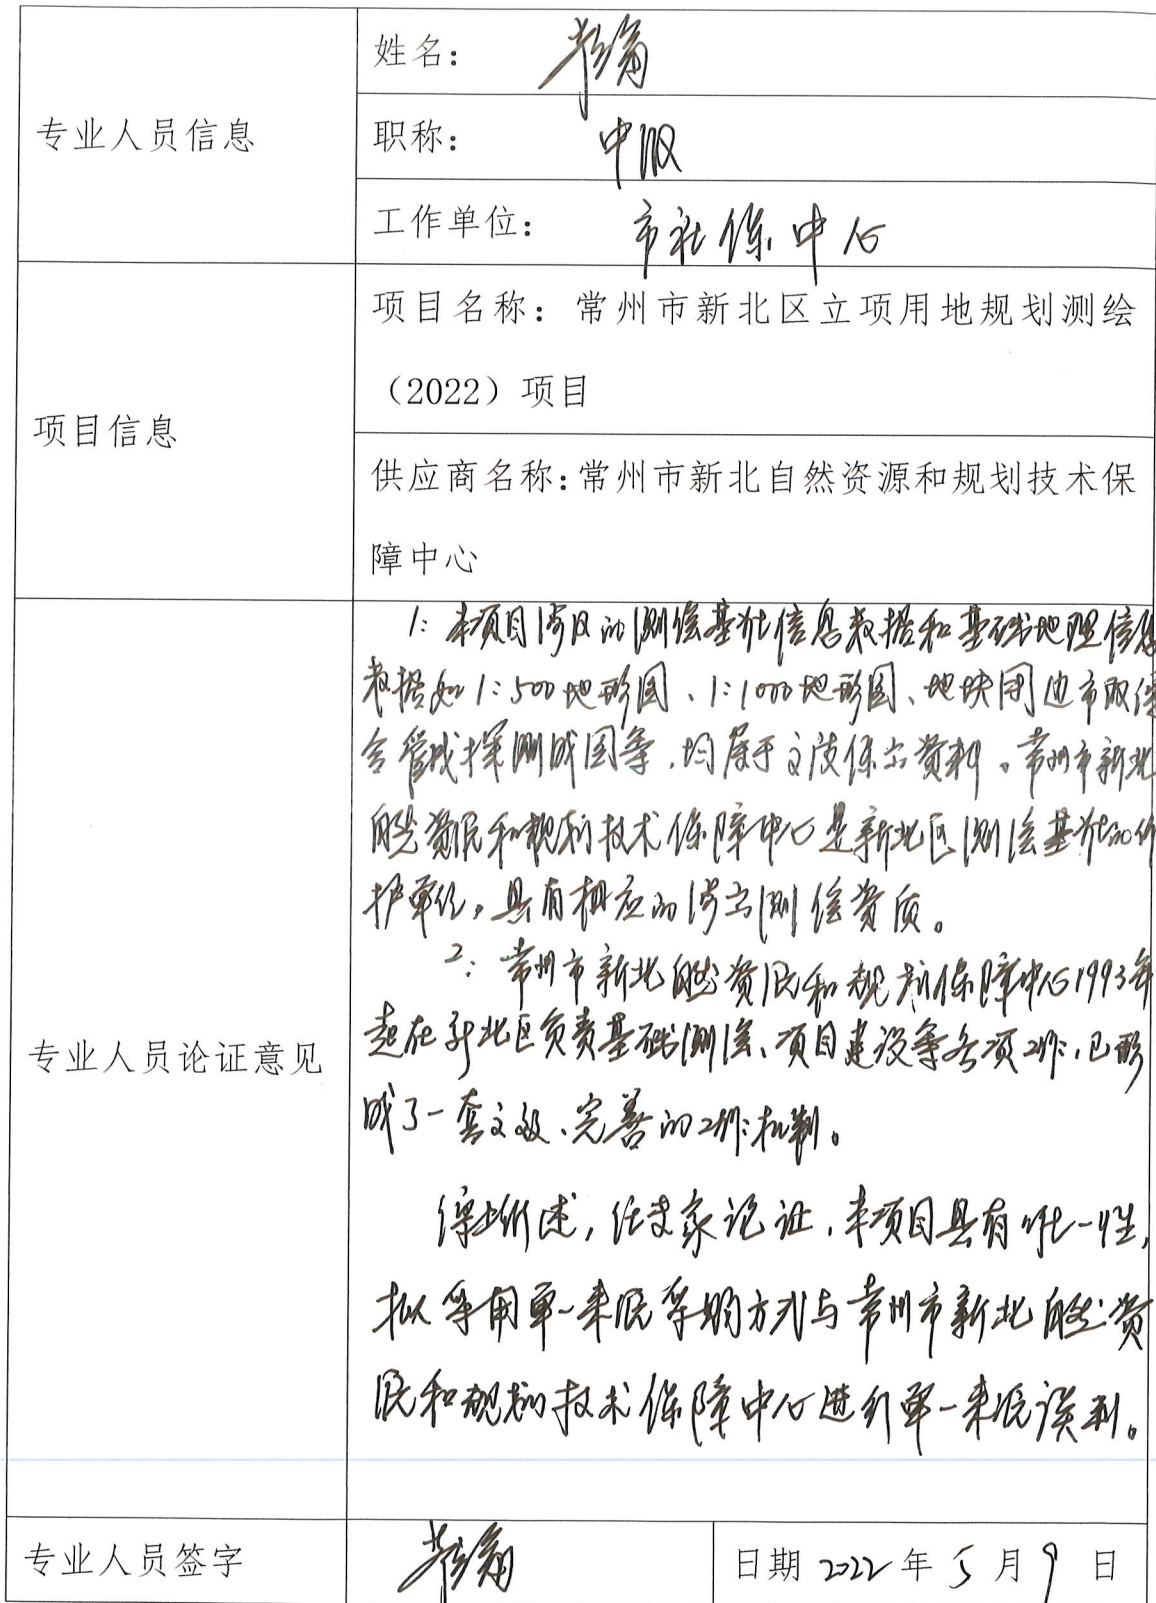 专业人员信息
姓名：
职称： 中级
工作单位： 市社保中心
项目信息
项目名称：常州市新北区立项用地规划测绘
（2022）项目
供应商名称：常州市新北自然资源和规划技术保
障中心
专业人员论证意见
1：本项目涉及的测绘基础信息数据和基础地理信息
数据如1：500地形图、1：1000地形图、地块周边市政综
合管线探测成图等，均属于涉密资料。常州市新北
自然资源和规划技术保障中心是新北区测绘基础的维
护单位，具有相应的涉密测绘资质。
2：常州市新北自然资源和规划保障中心1993年
起在新北区负责基础测绘、项目建设等各项工作，已形
成了一套 、完善的工作机制。
综上所述，经专家论证，本项目具有唯一性，
拟采用单一来源采购方式与常州市新北自然资
源和规划技术保障中心进行单一来源谈判。
专业人员签字
日期 2022 年 5 月 9 日